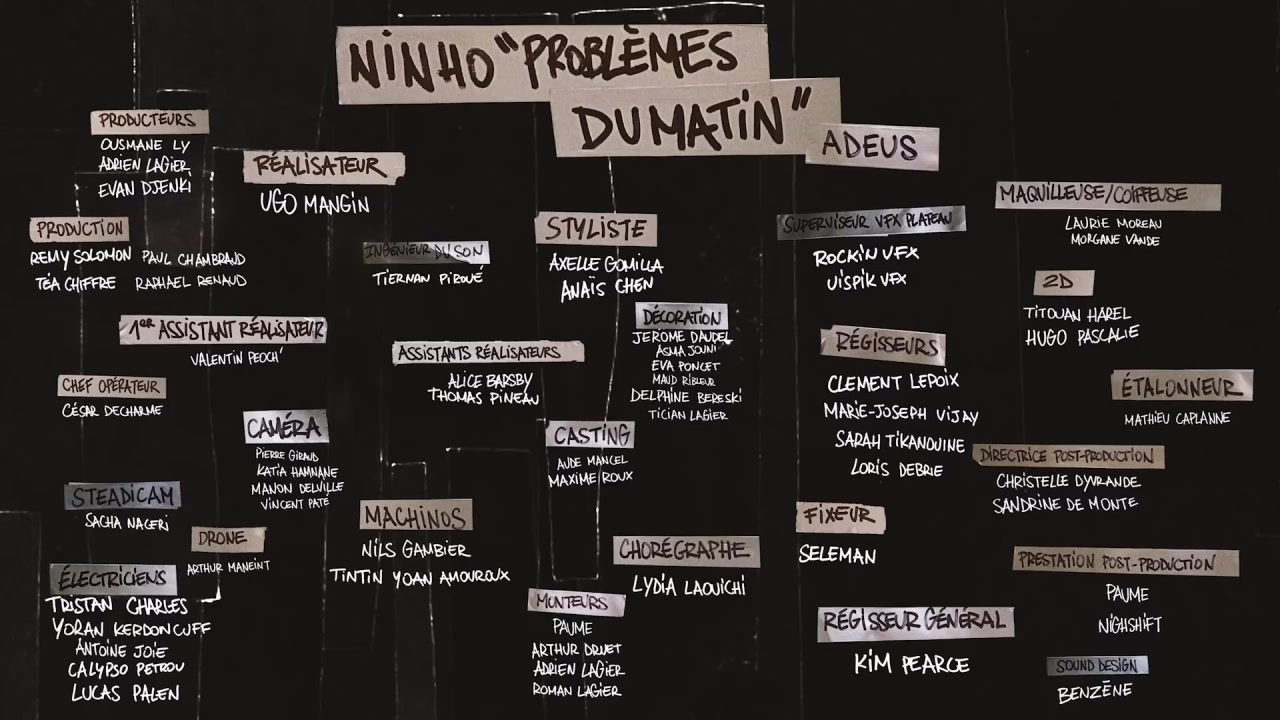 NINHO "PROBLÈMES
DU MATIN"
ADEUS
PRODUCTEURS
OUSMANE LY
ADRIEN LAGIER
EVAN DJENKI
RÉALISATEUR
UGO MANGIN
PRODUCTION
REMY SOLOMON PAUL CHAMBRAUD
TÉA CHIFFRE RAPHAEL RENAUD
INGÉNIEUR DU SON
TIERNAN PIROUÉ
STYLISTE
AXELLE GOMILLA
ANAÏS CHEN
SUPERVISEUR VFX PLATEAU
ROCKIN VFX
VISPIK VFX
MAQUILLEUSE/COIFFEUSE
LAURIE MOREAU
MORGANE VANDE
2D
TITOUAN HAREL
HUGO PASCALIE
1ER ASSISTANT RÉALISATEUR
VALENTIN PEOCH'
ASSISTANTS RÉALISATEURS
ALICE BARSBY
THOMAS PINEAU
DÉCORATION
JEROME DAUDEL
ASMA JOUNI
EVA PONCET
MAUD RIBLEUR
DELPHINE BERESKI
TICIAN LAGIER
RÉGISSEURS
CLEMENT LEPOIX
MARIE-JOSEPH VIJAY
SARAH TIKANOUINE
LORIS DEBRIE
ÉTALONNEUR
MATHIEU CAPLANNE
CHEF OPÉRATEUR
CÉSAR DECHARME
CAMÉRA
PIERRE GIRAUD
KATIA HAMNANE
MANON DELVILLE
VINCENT PATE
CASTING
AUDE MANCEL
MAXIME ROUX
DIRECTRICE POST-PRODUCTION
CHRISTELLE DYVRANDE
SANDRINE DE MONTE
STEADICAM
SACHA NACERI
DRONE
ARTHUR MANEINT
MACHINOS
NILS GAMBIER
TINTIN YOAN AMOUROUX
FIXEUR
SELEMAN
CHORÉGRAPHE
LYDIA LAOUICHI
PRESTATION POST-PRODUCTION
PAUME
NIGHSHIFT
ÉLECTRICIENS
TRISTAN CHARLES
YORAN KERDONCUFF
ANTOINE JOIE
CALYPSO PETROU
LUCAS PALEN
MONTEURS
PAUME
ARTHUR DRUET
ADRIEN LAGIER
ROMAN LAGIER
RÉGISSEUR GÉNÉRAL
KIM PEARCE
SOUND DESIGN
BENZĒNE